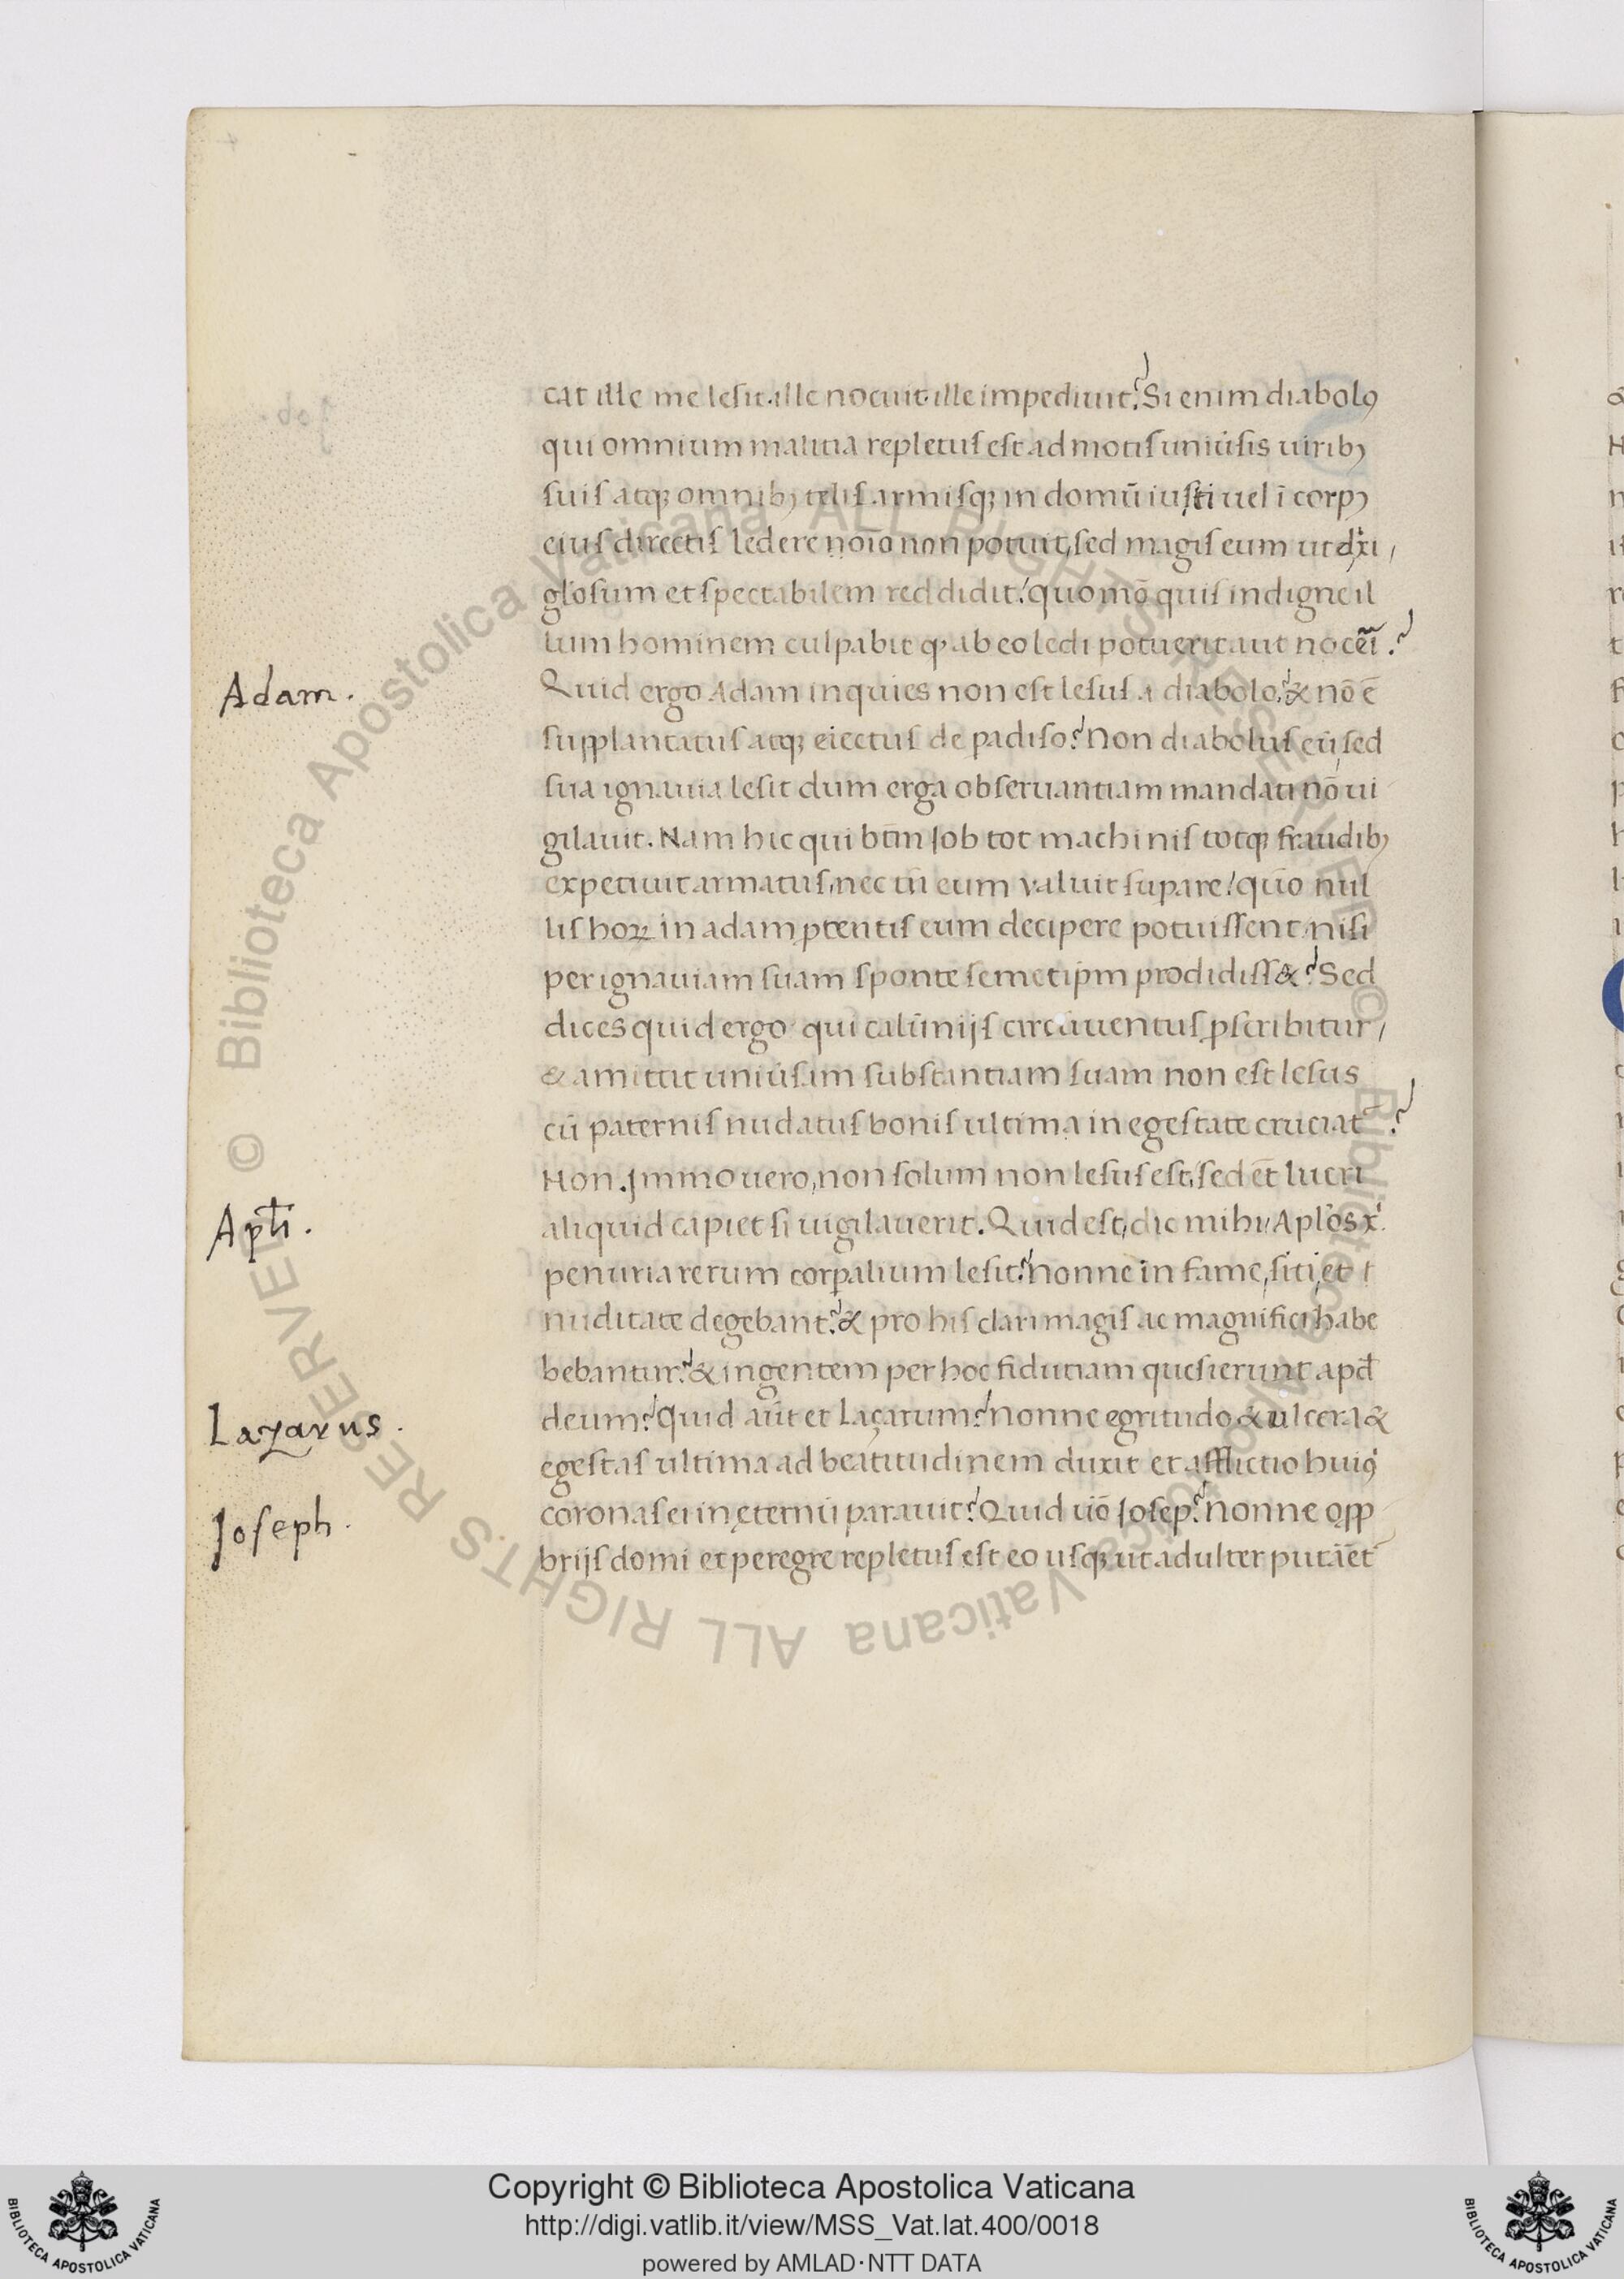 cat ille me lesit. ille nocuit. ille impediuit? Si enim diabolꝰ
qui omnium malitia repletus est ad motis uniūsis uiribꝫ
suis atqꝫ omnibꝫ telis. armisqꝫ in domū iusti uel ī corpꝫ
eius directis ledere noīo non potuit, sed magis eum ut dixi,
gl'osum et spectabilem reddidit: quomō quis indigne il
lum hominem culpabit qꝫ ab eo ledi potuerit aut nocēī?
Adam.
Quid ergo Adam inquies non est lesus a diabolo? & nō ē
supplantatus atqꝫ eiectus de padiso? Non diabolus eū, sed
sua ignauia lesit dum erga obseruantiam mandati nō ui
gilauit. Nam hic qui btm̄ Iob tot machinis totqꝫ fraudibꝫ
expetiuit armatus, nec tn̄ eum valuit supare: quō nul
lis hoꝝ in adam ptentis eum decipere potuissent, nisi
per ignauiam suam sponte semetip̄m prodidiss&? Sed
dices quid ergo qui calūnijs circūuentus pscribitur,
& amittit uniūsam substantiam suam non est lesus
cū paternis nudatus bonis ultima in egestate cruciat̄?
Non. Immo uero, non solum non lesus est, sed et̄ lucri
Apl̄i.
aliquid capiet si uigilauerit. Quid est, dic mihi, Apl'os x̄
penuria rerum corpalium lesit? nonne in fame, siti, et
nuditate degebant? & pro his clari magis ac magnifici habe
bebantur? & ingentem per hoc fidutiam quesierunt apd̄
Lazarus.
deum? Quid aūt et Laçarum? nonne egritudo & ulcera &
egestas ultima ad beatitudinem duxit et afflictio huiꝰ
Ioseph.
coronas ei in ęternū parauit? Quid uō Iosep? nonne opp
brijs domi et peregre repletus est eo usqꝫ ut adulter putaīet
Copyright © Biblioteca Apostolica Vaticana
http://digi.vatlib.it/view/MSS_Vat.lat.400/0018
powered by AMLAD·NTT DATA
© Biblioteca Apostolica Vaticana ALL RIGHTS RESERVED
© Biblioteca Apostolica Vaticana ALL RIGHTS RESERVED
BIBLIOTECA APOSTOLICA VATICANA
BIBLIOTECA APOSTOLICA VATICANA